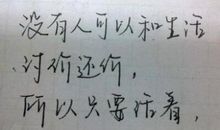 没有人可以和生活
讨价还价，
所以只要活着，